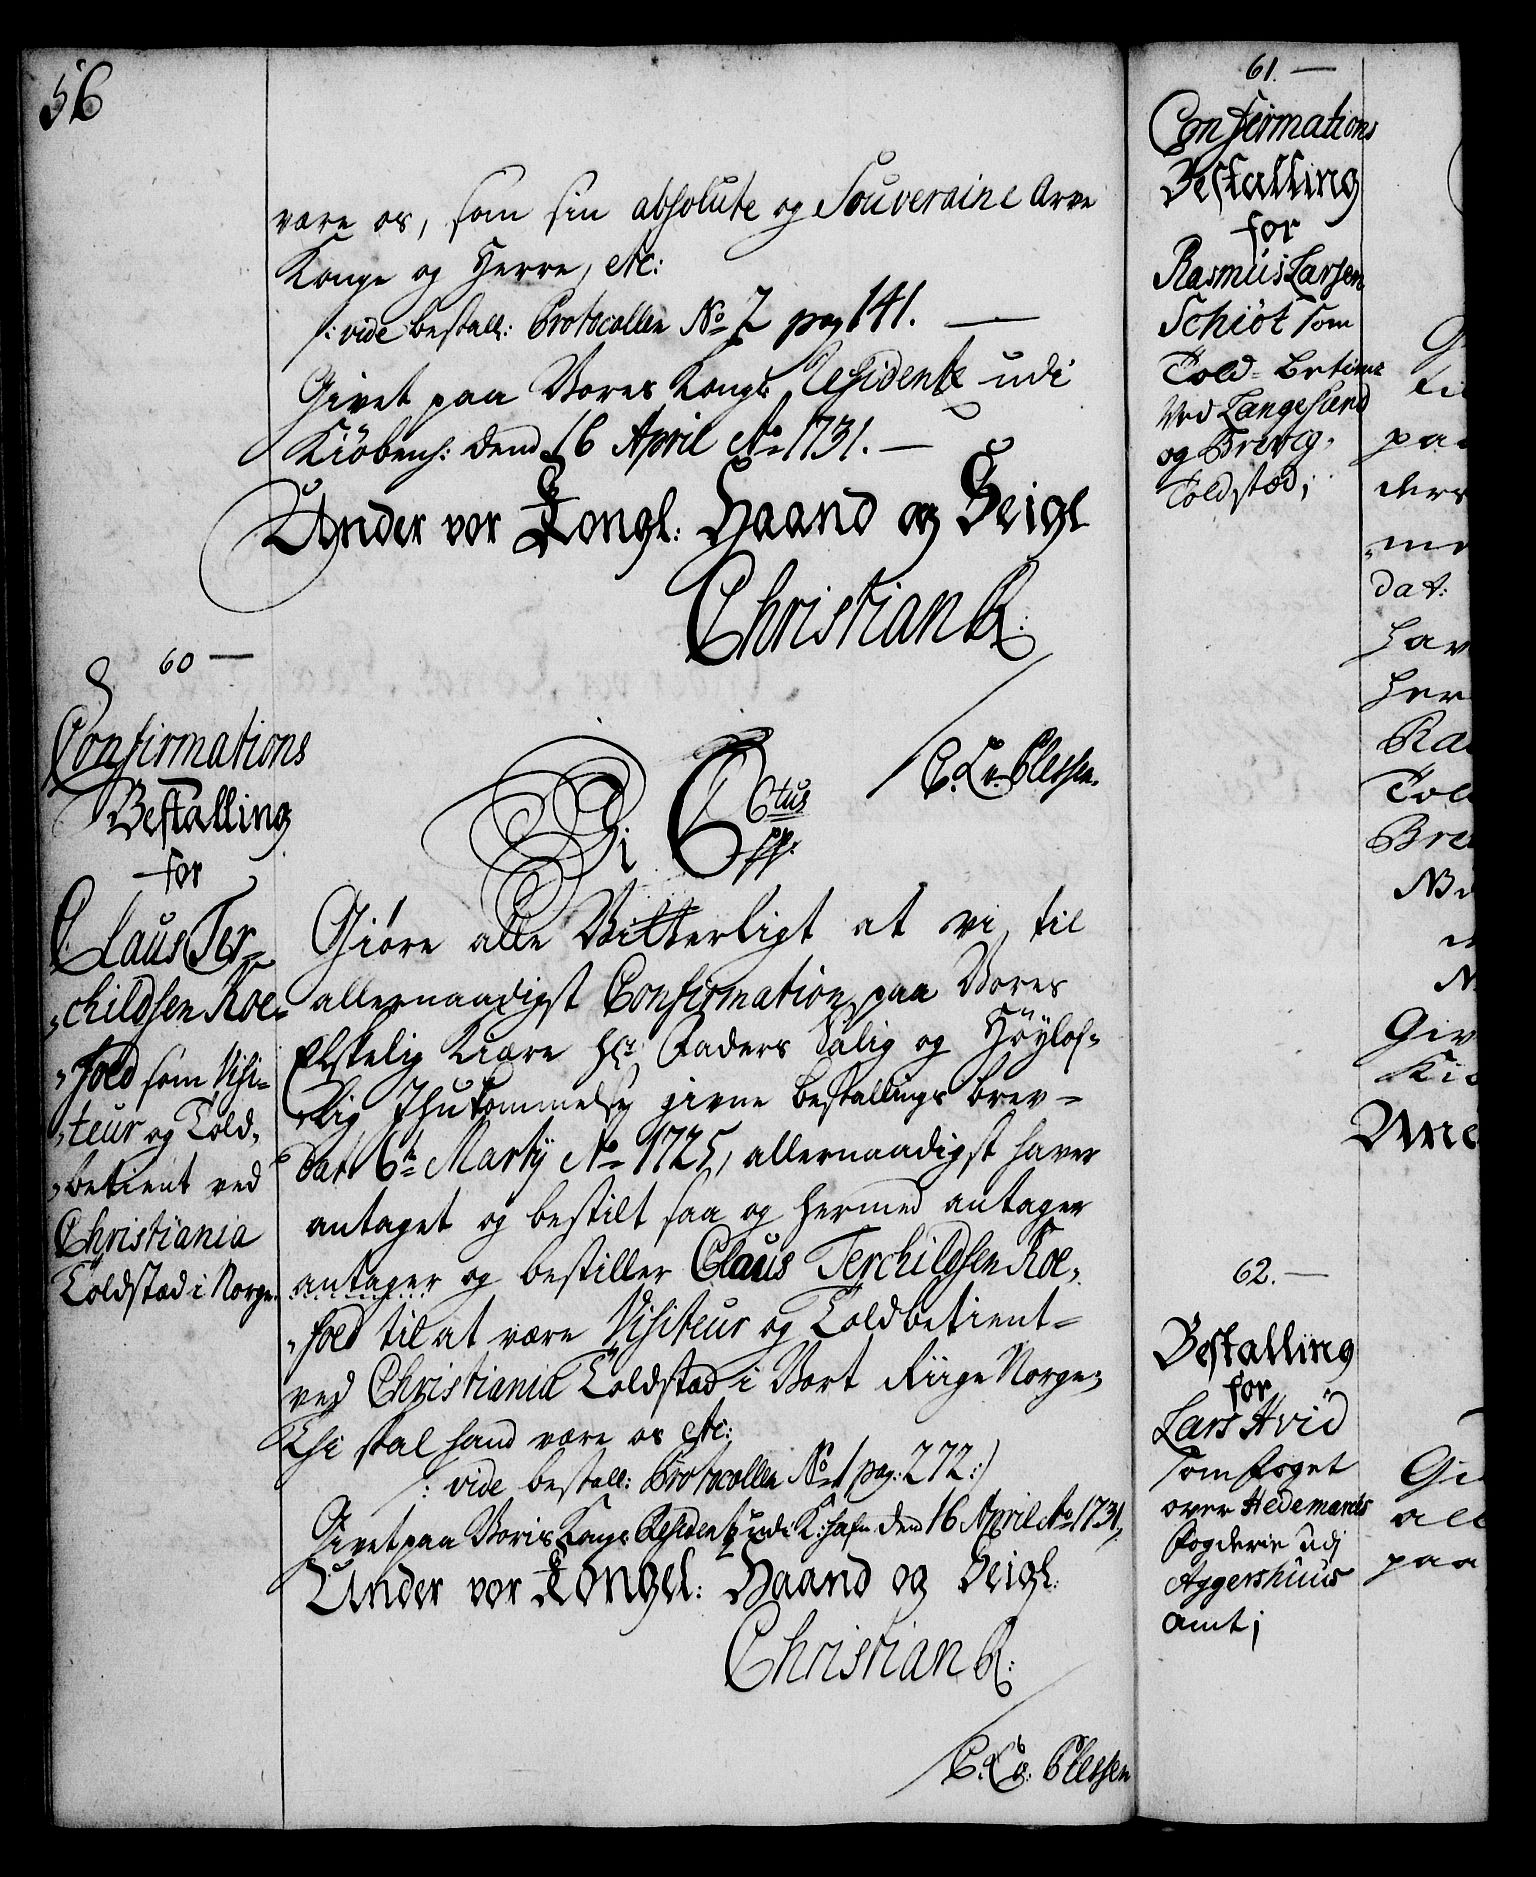 56
være os, som sin absolute og Souveraine Arve
Konge og Herre, etc:
/: vide bestall: Protocollen No 2 pag 141. —
Givet paa Vores Kongl: Residentz udi
Kiøbenh: dend 16 April Ao 1731. —
Under vor Kongl: Haand og Seigl
Christian R:
C. A. v. Plessen.
60 —
Confirmations
Bestalling
for
Claus Ter-
„childsen Roe-
„fold som Visi-
„teur og Told-
„betient ved
Christiania
Toldstæd i Norge.
Vi C 6tus
pp.
Giøre alle Vitterligt at vi til
allernaadigst Confirmation paa Vores
Elskelig Kiære Hr: Faders Salig og Høylof-
„lig Ihukommelse givne bestallings brev-
dat: 6te Martij Ao 1725, allernaadigst haver
antaget og bestilt saa og hermed antager
antager og bestiller Claus Terchildsen Roe-
„fold til at være Visiteur og Toldbetient-
ved Christiania Toldstæd i Vort Riige Norge;
Thi skal hand være os etc:
/: vide bestall: Protocollen No 1 pag: 272:/
Givet paa Voris Kongl: Residentz udi K:hafn den 16 April Ao 1731,
Under vor Kongel: Haand og Seigl:
Christian R:
C. A. v: Plessen
61. —
Confirmations
Bestalling
for
Rasmus Larsen
Schiøt som
Told-betient
Ved Langesund
og Brevig,
Toldstæd;
62. —
Bestalling
for
Lars Hvid
som foget
over Hedemarks
fogderie udi
Aggershuus
Amt;
paa
ders
dat:
hav
her
Tol
Bre
Giv
Kiø
Und
all
paa